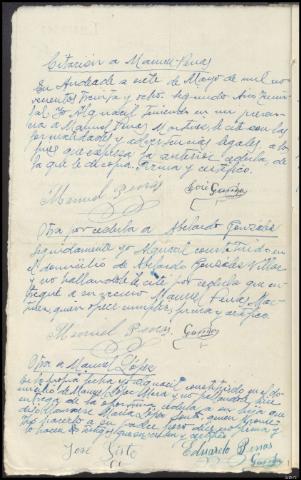 Citación a Manuel Penas
En Andeade a siete de Mayo de mil no-
vecientos treinta y ocho segundo Año Triun-
fal Yo Alguacil teniendo en mi presen-
cia a Manuel Penas Martinez le cité con las
formalidades y advertencias legales, a los
fines que expresa la anterior cedula, de
la que le di copia. Firma y certifico.
Manuel Penas
José
Otra por cedula a Abelardo Gonzales
Seguidamente yo Alguacil constituido en
el domicilio de Abelardo Gonzales Villar
y no hallandole le cité por cedula que en-
tregué a su vecino Manuel Penas Mar-
tinez, quien ofrece cumplir, firma y certifico.
Manuel Penas
Otra a Manuel López
En la propia fecha yo alguacil constituido en el do-
micilio de Manuel López Mera y no hallandole hice
entrega de la oportuna cedula a su hija que
dijo llamarse Maria López quien
hacerlo a su padre pero dijo no firmar y
lo hacen los testigos que suscriben y certifico
José
Eduardo Penas